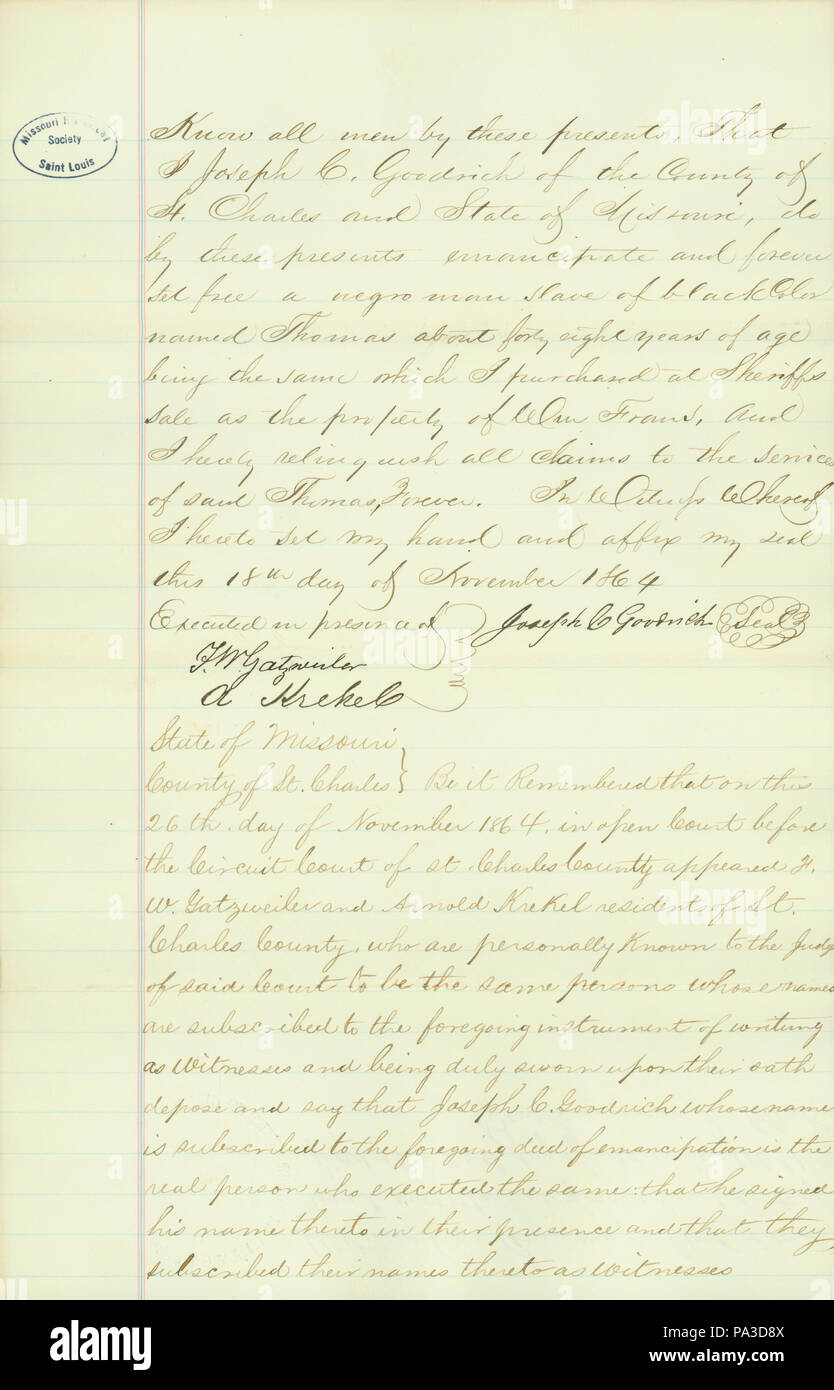 Missouri
Society
Saint Louis
Know all men by these presents, That
I Joseph C. Goodrich of the County of
St. Charles and State of Missouri, do
by these presents emancipate and forever
set free a negro man slave of black Color
named Thomas about forty eight years of age
being the same which I purchased at Sheriffs
sale as the property of Wm Frans, And
I hereby relinquish all claims to the services
of said Thomas, Forever. In Witness Whereof
I hereto set my hand and affix my seal
this 18th day of November 1864
Executed in presence of } Joseph C Goodrich Seal
F. W. Gatzweiler
A Krekel
State of Missouri
County of St. Charles } Be it Remembered that on this
26th day of November 1864, in open Court before
the Circuit Court of St. Charles County appeared F.
W. Gatzweiler and Arnold Krekel residents of St.
Charles County, who are personally Known to the Judge
of said Court to be the same persons whose names
are subscribed to the foregoing instrument of writing
as Witnesses and being duly sworn upon their oath
depose and say that Joseph C. Goodrich whose name
is subscribed to the foregoing deed of emancipation is the
real person who executed the same: that he signed
his name thereto in their presence and that they
subscribed their names thereto as Witnesses
alamy
Image ID: PA3D8X
www.alamy.com